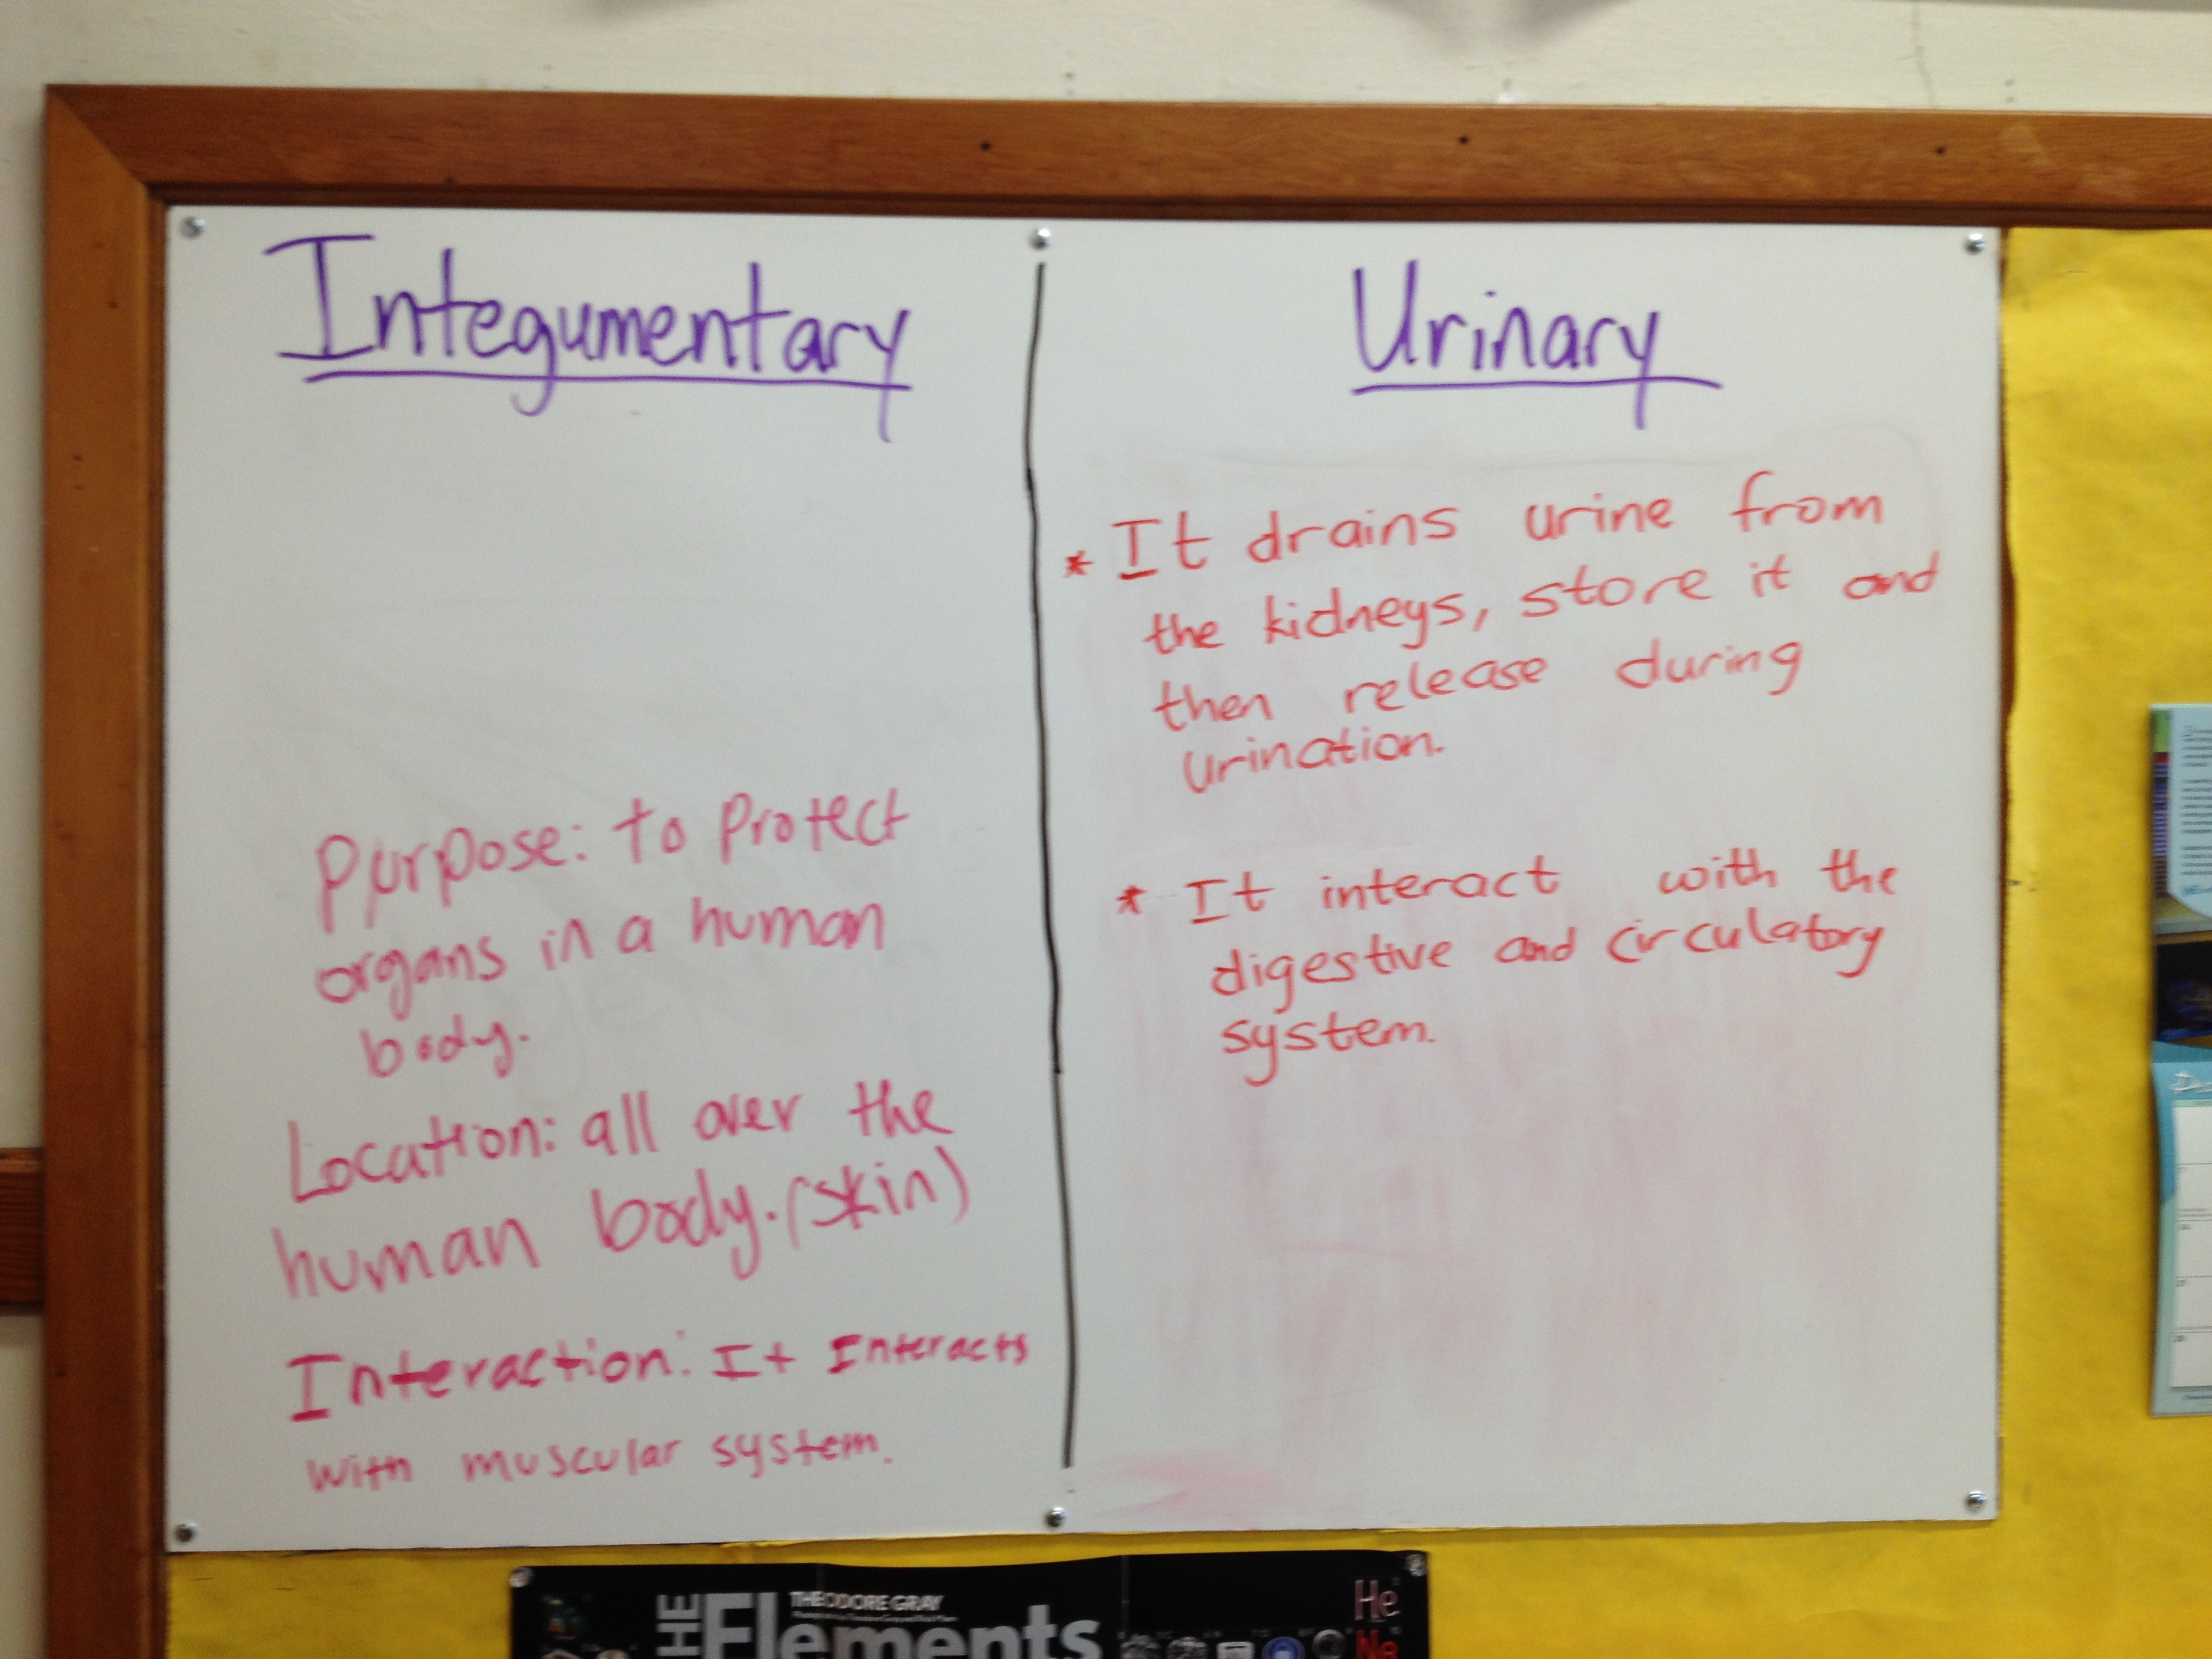 Integumentary
Purpose: to protect
organs in a human
body.
Location: all over the
human body. (skin)
Interaction: It Interacts
with muscular system.
Urinary
* It drains urine from
the kidneys, store it and
then release during
urination.
* It interact with the
digestive and circulatory
system.
THE
THEODORE GRAY
Elements
He
Ne